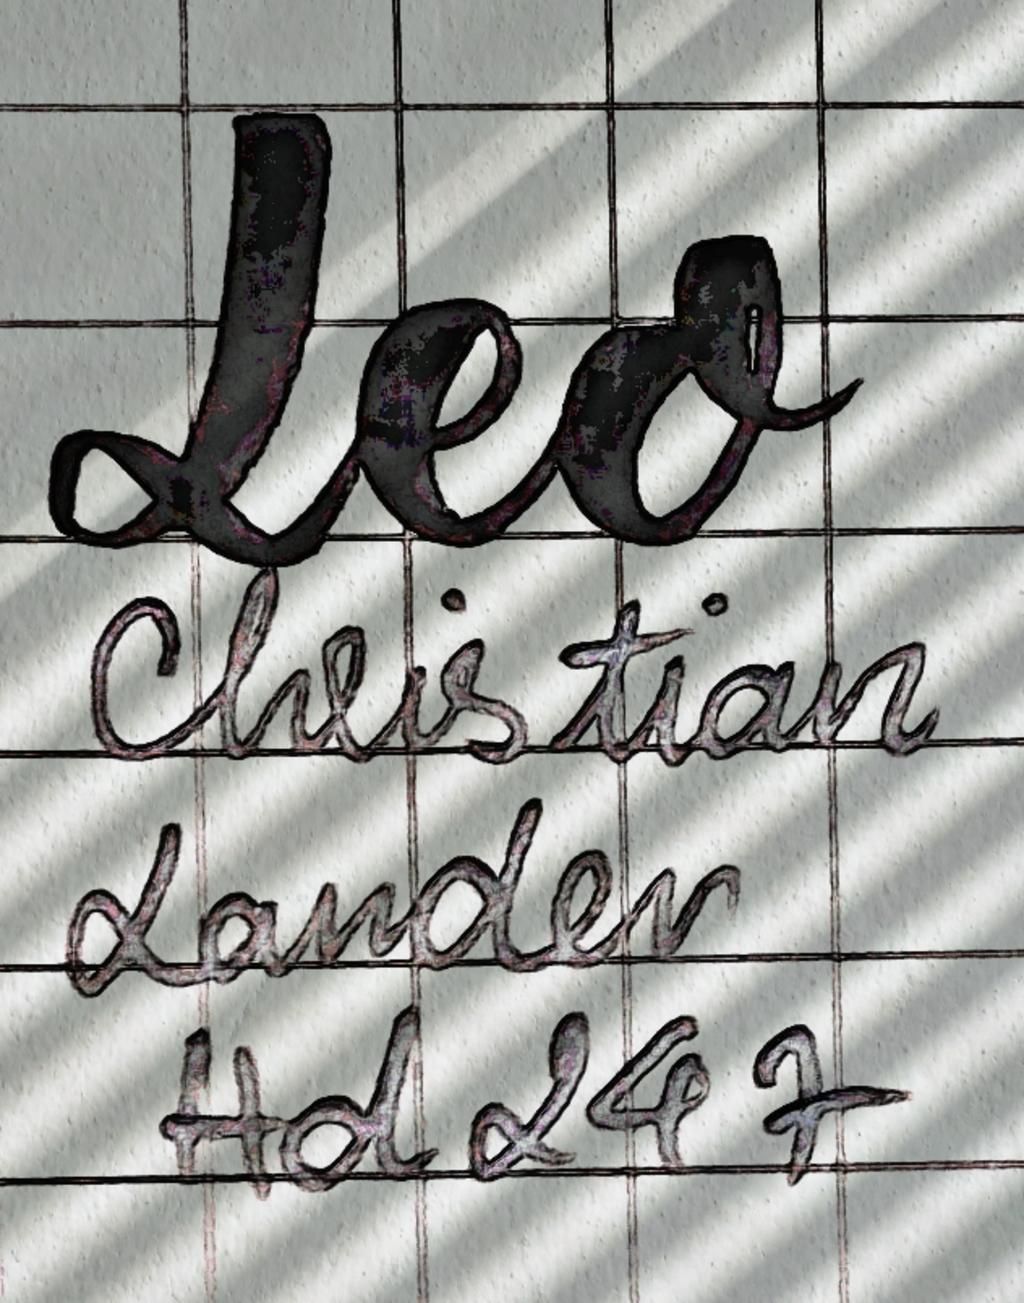 Leo
Christian
Lander
Hd 247